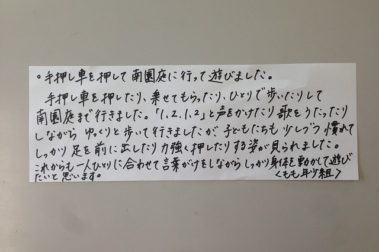 。手押し車を押して南園庭に行って遊びました。
手押し車を押したり、乗せてもらったり、ひとりで歩いたりして
南園庭まで行きました。「1、2、1、2」と声をかけたり歌をうたったり
しながらゆっくりと歩いて行きましたが、子どもたちも少しづつ慣れて
しっかり足を前に出したり力強く押したりする姿が見られました。
これからも一人ひとりに合わせて言葉がけをしながらしっかり身体を動かして遊び
たいと思います。
〈もも年少組〉